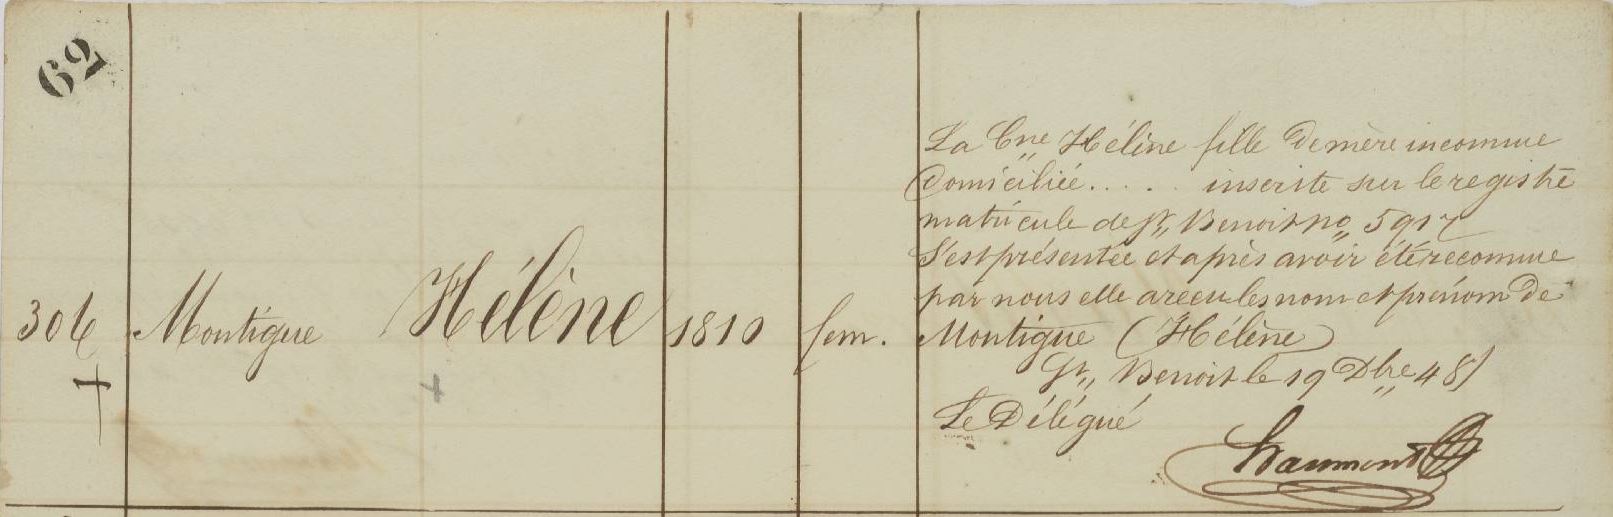 62
306 Montigue Hélène 1810 fem.
La Cne Hélène fille de mère inconnue
domiciliée..... inscrite sur le registre
matricule de St Benoit no 5917
S'est présentée et après avoir été reconnue
par nous elle a reçu les nom et prénom de
Montigue (Hélène)
St Benoit le 19 Dbre 48
Le Délégué